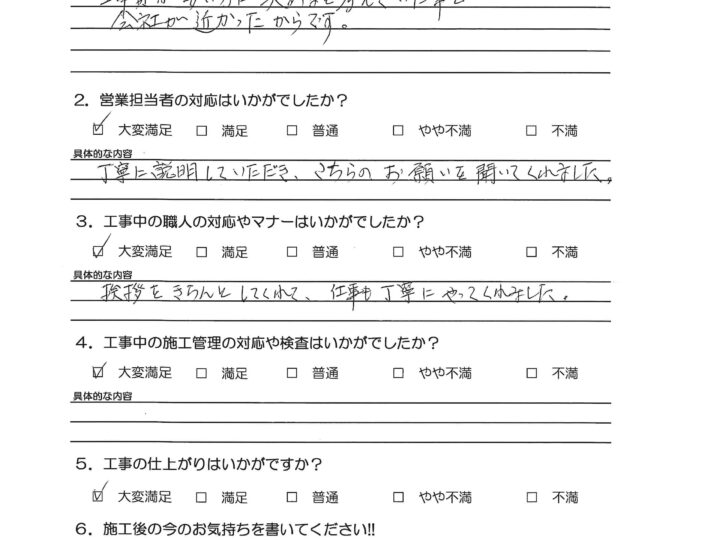 会社が近かったからです。
2. 営業担当者の対応はいかがでしたか?
☑ 大変満足 □ 満足 □ 普通 □ やや不満 □ 不満
具体的な内容
丁寧に説明していただき、こちらのお願いを聞いてくれました。
3. 工事中の職人の対応やマナーはいかがでしたか?
☑ 大変満足 □ 満足 □ 普通 □ やや不満 □ 不満
具体的な内容
挨拶をきちんとしてくれて、仕事も丁寧にやってくれました。
4. 工事中の施工管理の対応や検査はいかがでしたか?
☑ 大変満足 □ 満足 □ 普通 □ やや不満 □ 不満
具体的な内容
5. 工事の仕上がりはいかがですか?
☑ 大変満足 □ 満足 □ 普通 □ やや不満 □ 不満
6. 施工後の今のお気持ちを書いてください!!